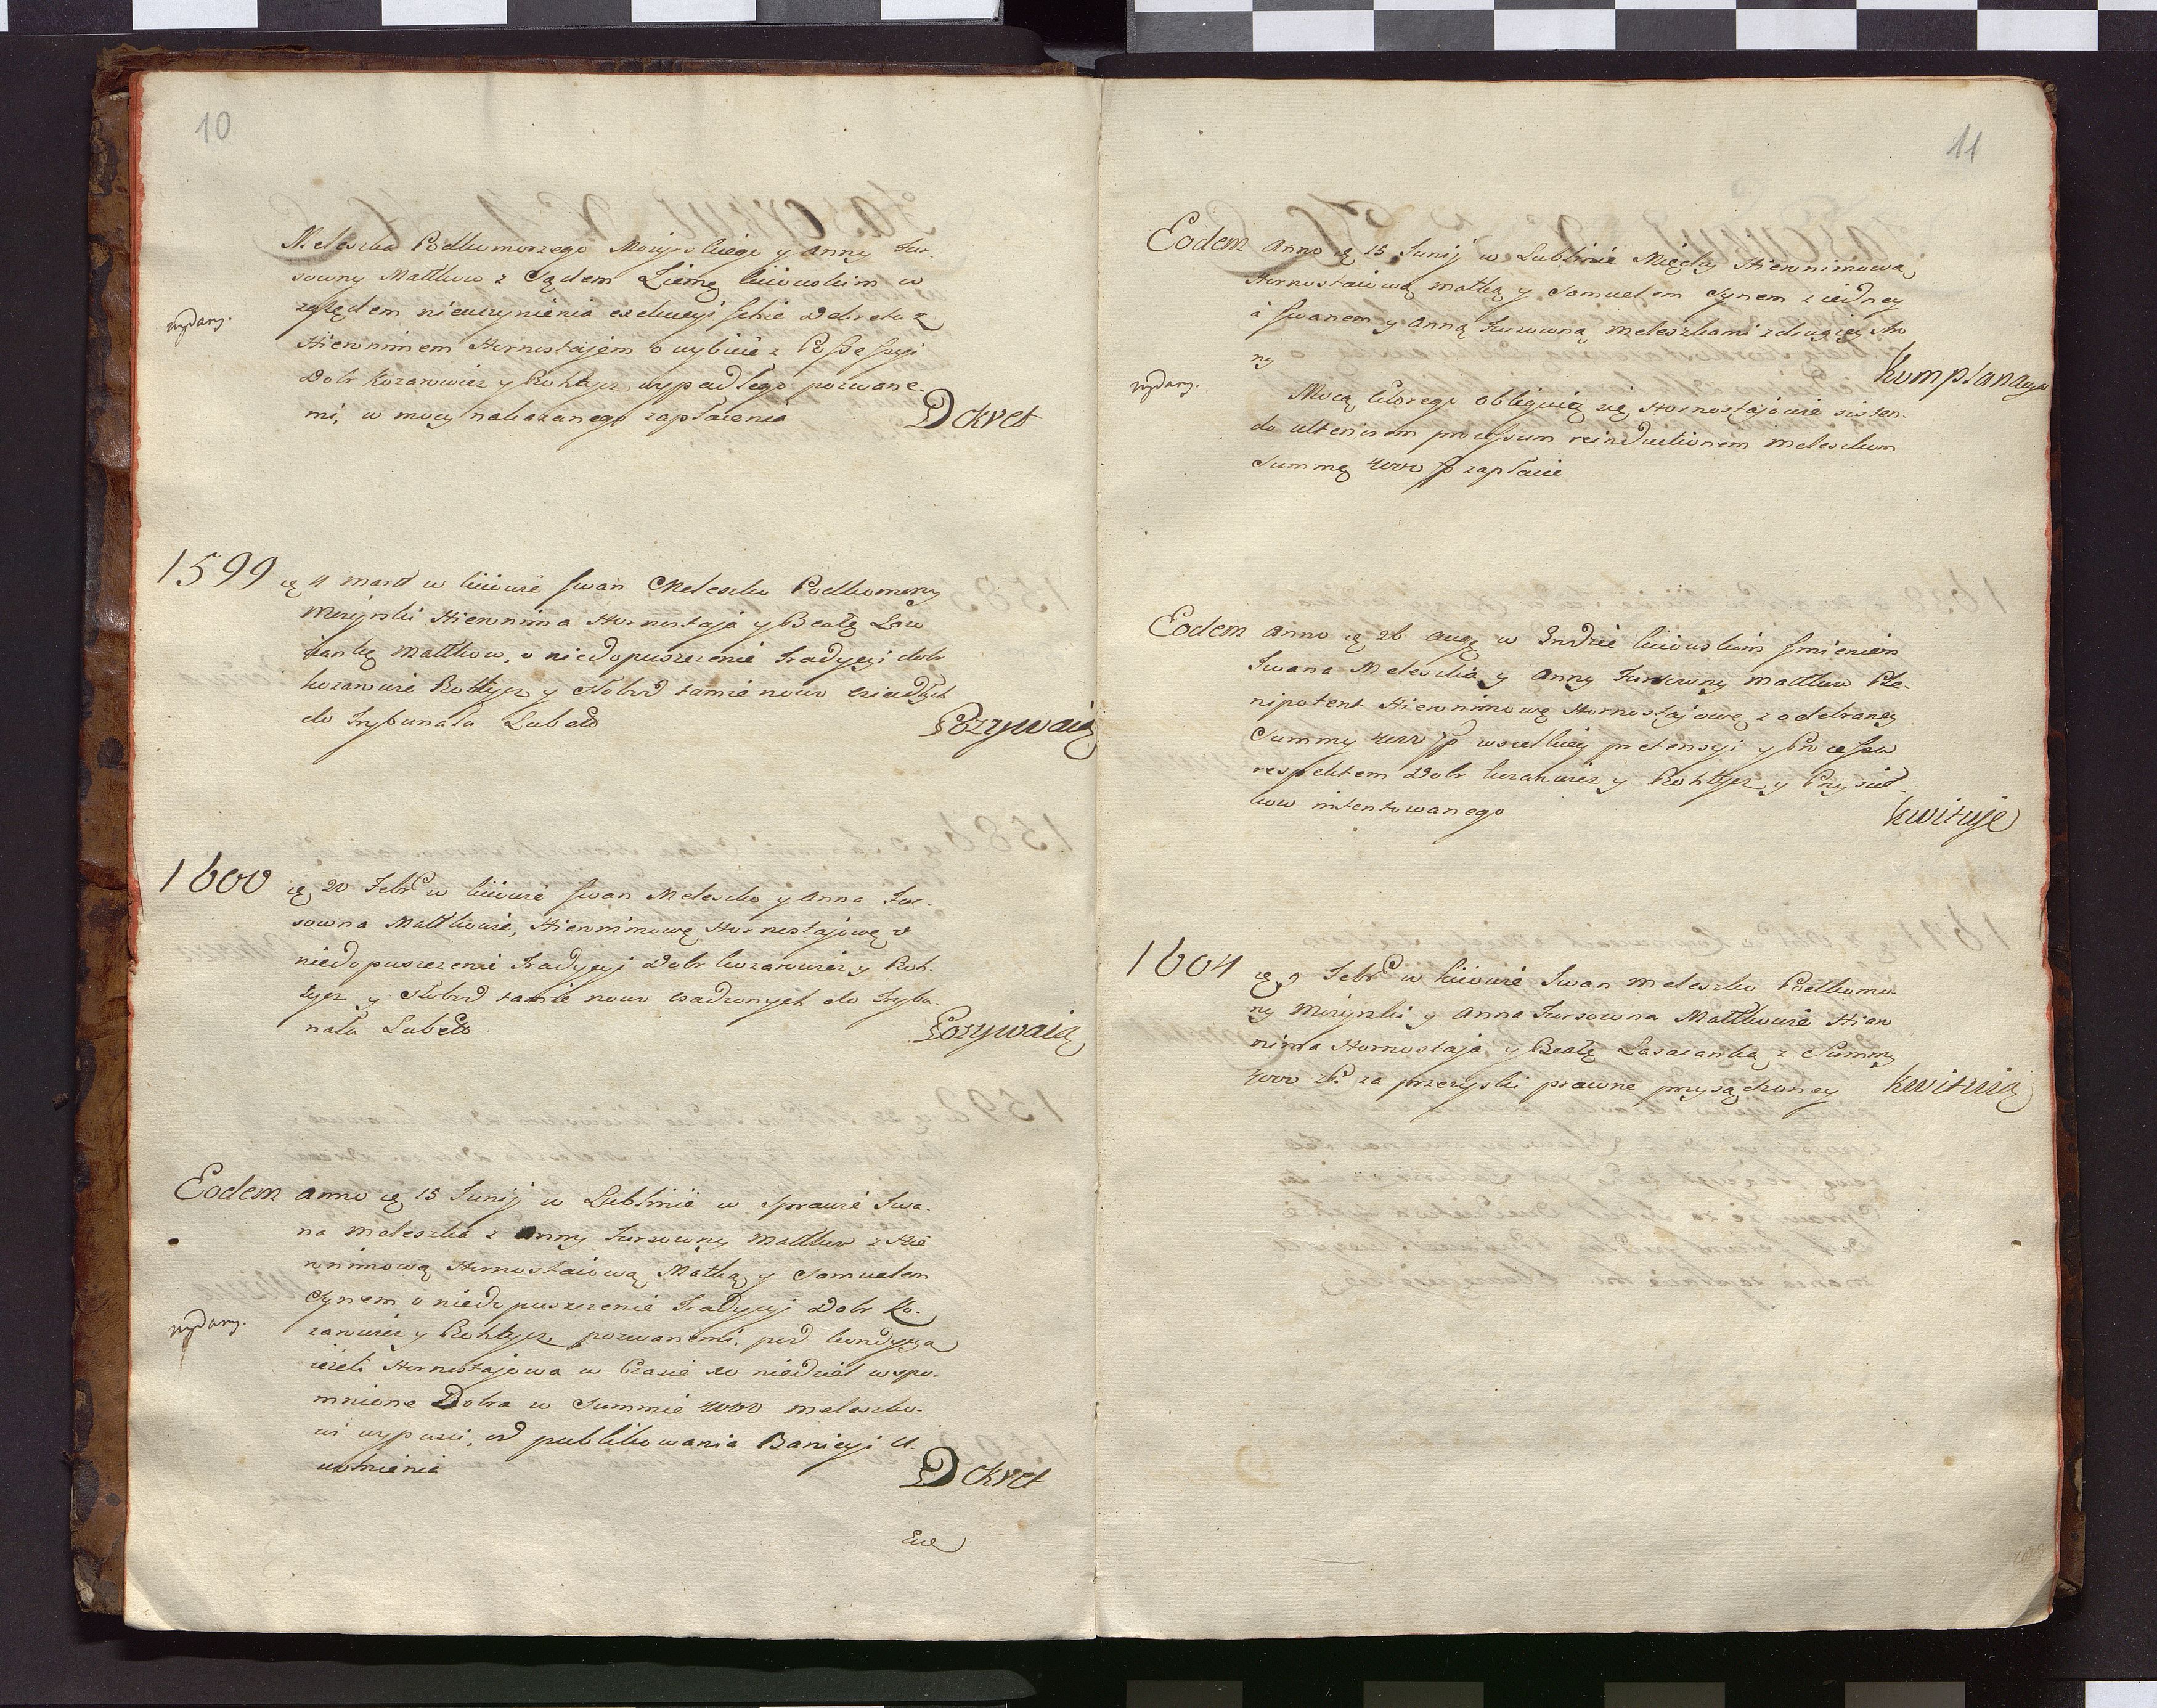 10
Meleszka Podkomorzego Mozyrskiego y Anny Fur-
sowny Małżków z Sądem Ziemę kiiowskim w
zględem nieuczynienia exekucyi seku Dekretu z
wydany.
Hieronimem Hornostajem o wybicie z Possessyi
Dobr Kozarowicz y Rohtycz wypadłego pozwane-
mi, w mocy nakazanego zapłacenia
Dekret
1599
ię 11 Martÿ w kiiowie Jwan Meleszko Podkomorzy
Mozyrski Hieronima Hornostaja y Beatę Ław
Małżków, o niedopuszczenie Tradycyi dobr
kozarowie Rohtycz y słobod tamże nowo
do Trybunału Lubelo
Pozywaią
1600
ię 20 Febrῦ w kiiowie Jwan Meleszko y Anna Fur-
sowna Małżkowie, Hieronimowę Hornostajowę o
niedopuszczenie Tradycyi Dobr kozarowicz y Roh-
tycz y słobod tamże nowo osadzonych do Trybu-
nału Lubelo
Pozywaią
Eodem Anno ię 15 Junij w Lublinie w sprawie Jwa-
na Meleszka z Anny Fursowny Małżków z Hie
ronimową Hornostaiową Matką y Samuelem
Synem o niedopuszczenie Tradycyi Dobr Ko-
wydany.
zarowicz y Rohtycz pozwanemi, pod kondycyą
ieżeli Hornostajowa w Czasie 10 niedziel wspo-
mnione Dobra w Summie 4000 Meleszko-
wi wypuści, od publikowania Banicyi U-
wolnienia
Dekret
11
Eodem Anno ię 15 Junij w Lublinie Między Hieronimową
Hornostaiową matką y Samuelem Synem z iedney
a Jwanem y Anną Fursowną Meleszkami z drugiey stro
ny
Komplanacya
wydany.
Mocą którego obliguią się Hornostajowie
do ulteriorem processum reinductionem Meleszkom
Summę 4000 zapłacić
Eodem Anno ię 26 Augę w Grodzie kiiowskim Jmieniem
Jwana Meleszka y Anny Fursowny Małżków Ple-
nipotent Hieronimowę Hornostajowę z odebraney
Summy 4000 wszelkiey pretensyi y Processu
respektem Dobr kozarowicz y Rohtycz y Przysioł-
kow intentowanego
kwituje
1604
ię 9 Febrῦ w kiiowie Jwan Meleszko Podkomo-
rzy Mozyrski y Anna Fursowna Małżkowie Hiero
nima Hornostaja y Beatę z Summy
4000 zł za przezyski prawne przysądzoney
kwituią